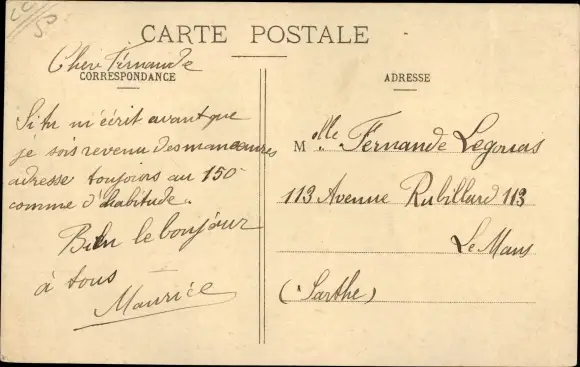 CARTE POSTALE
Cher Fernande
CORRESPONDANCE
Si tu m'écrit avant que
je sois revenu des manœuvres
adresse toujours au 150
comme d'habitude.
Bien le bonjour
à tous
Maurice
ADRESSE
M Mlle Fernande Legouas
113 Avenue Rubillard 113
Le Mans
(Sarthe)